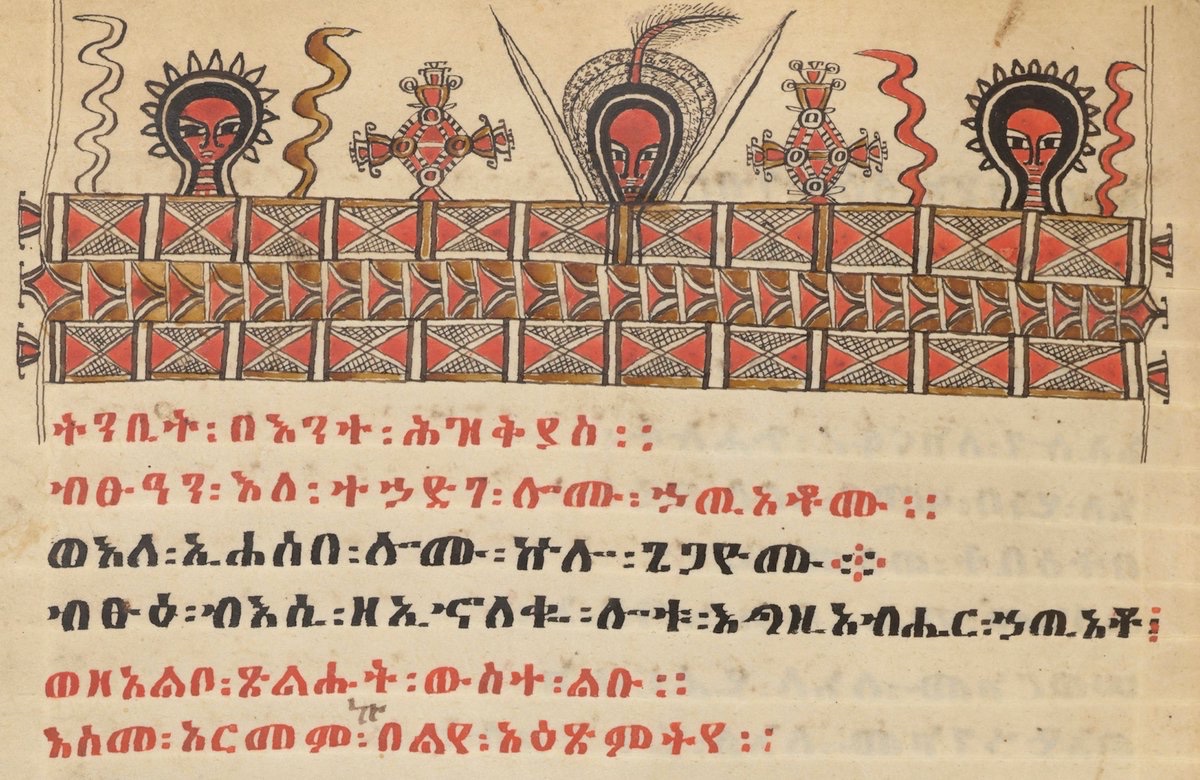 ትንቢት፡በእንተ፡ሕዝቅያስ፡፡
ብፁዓን፡እለ፡ተኃድገ፡ሎሙ፡ኃጢአቶሙ፡፡
ወእለ፡ኢሐሰበ፡ሎሙ፡ኵሎ፡ጌጋዮሙ፨
ብፁዕ፡ብእሲ፡ዘኢኈለቈ፡ሎቱ፡እግዚአብሔር፡ኃጢአቶ፡
ወዘአልቦ፡ጽልሑት፡ውስተ፡ልቡ፡፡
እስመ፡አርመምኩ፡በልየ፡አዕጽምትየ፡፡